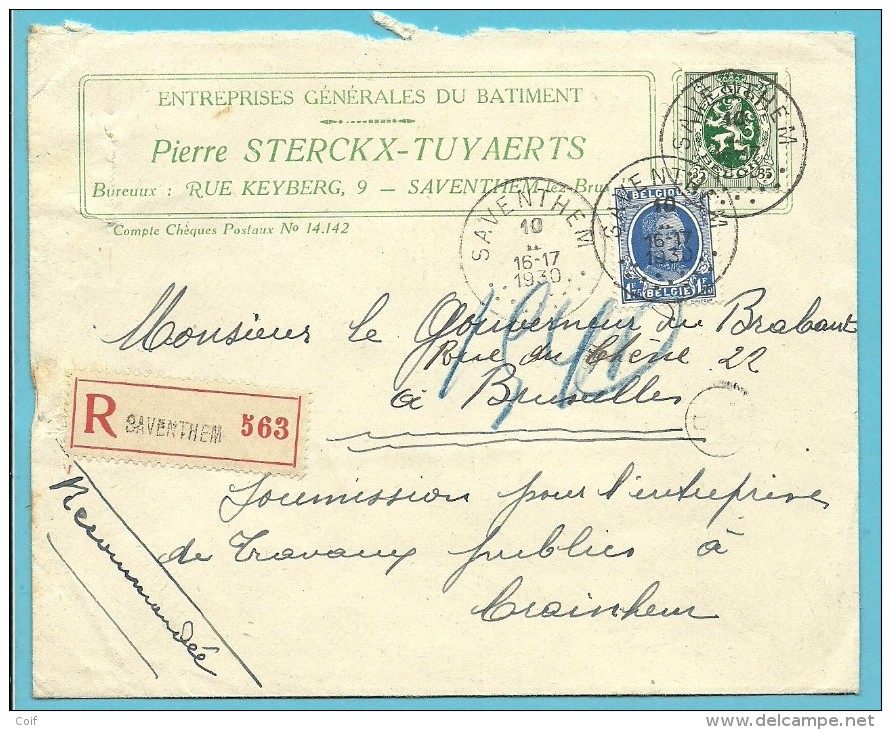 ENTREPRISES GÉNÉRALES DU BATIMENT
Pierre STERCKX-TUYAERTS
Bureuux : RUE KEYBERG, 9 — SAVENTHEM-lez-Brux
Compte Chèques Postaux No 14.142
BELGIQUE
35 35
BELGIË
SAVENTHEM
10
II
16-17
1930
SAVENTHEM
10
II
16-17
1930
SAVENTHEM
10
BELGIQUE
1F75 BELGIE 1F75
Monsieur le Gouverneur du Brabant
Rue du Chêne 22
à Bruxelles
R SAVENTHEM 563
Recommandée
Soumission pour l'entreprise
de Travaux publics à
Crainhem
Coif
www.delcampe.net